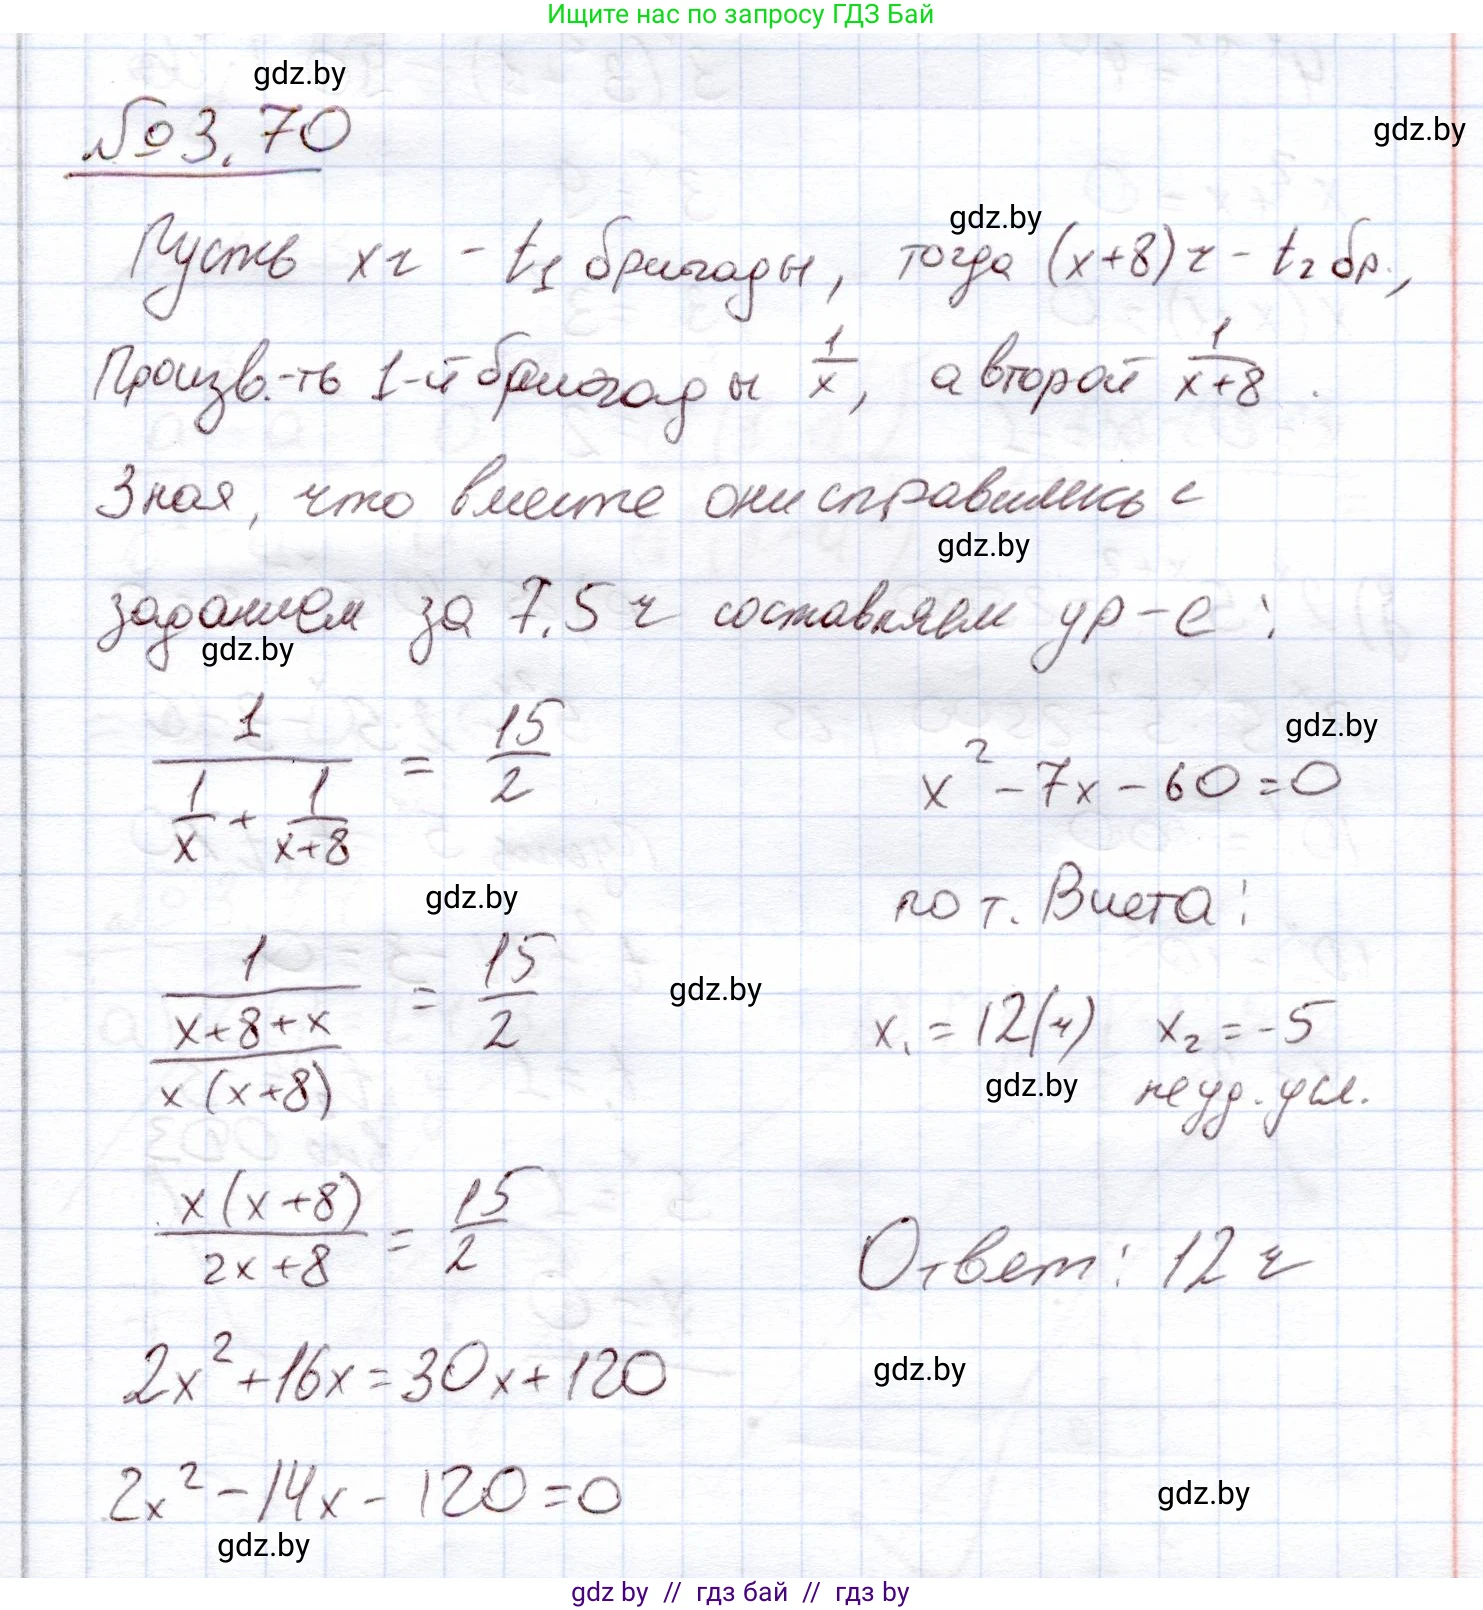 Ищите нас по запросу ГДЗ Бай
gdz.by
№3.70
gdz.by
gdz.by
Пусть x ч - t₁ бригады, тогда (x+8) ч - t₂ бр.,
Произв.-ть 1-й бригады 1/x, а второй 1/(x+8).
Зная, что вместе они справились с
gdz.by
заданием за 7,5 ч составляем ур-е:
gdz.by
1/(1/x + 1/(x+8)) = 15/2
gdz.by
1/((x+8+x)/(x(x+8))) = 15/2
gdz.by
(x(x+8))/(2x+8) = 15/2
2x² + 16x = 30x + 120
2x² - 14x - 120 = 0
gdz.by
gdz.by
x² - 7x - 60 = 0
по т. Виета:
x₁ = 12 (ч) x₂ = -5
gdz.by
не уд. усл.
Ответ: 12 ч
gdz.by
gdz.by
gdz by // гдз бай // гдз by